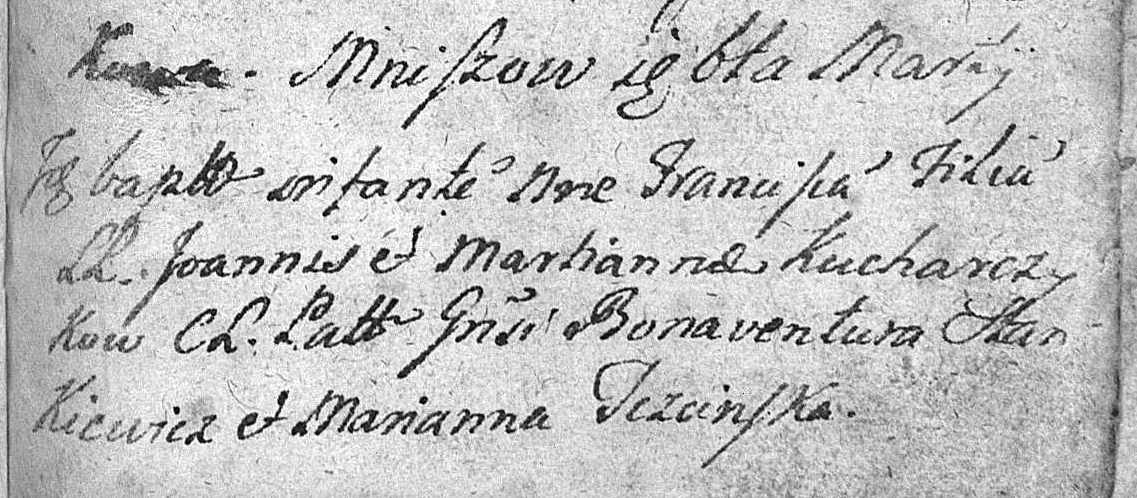 Kowa. Mniszow 19 bra Martij
Jdē baptt infantē nne Franciscā Filiā
LL. Joannis et Marianna Kucharczy
kow CL. Latt Gnsi Bonaventura Stan
kiewicz et Marianna Tczcinska.